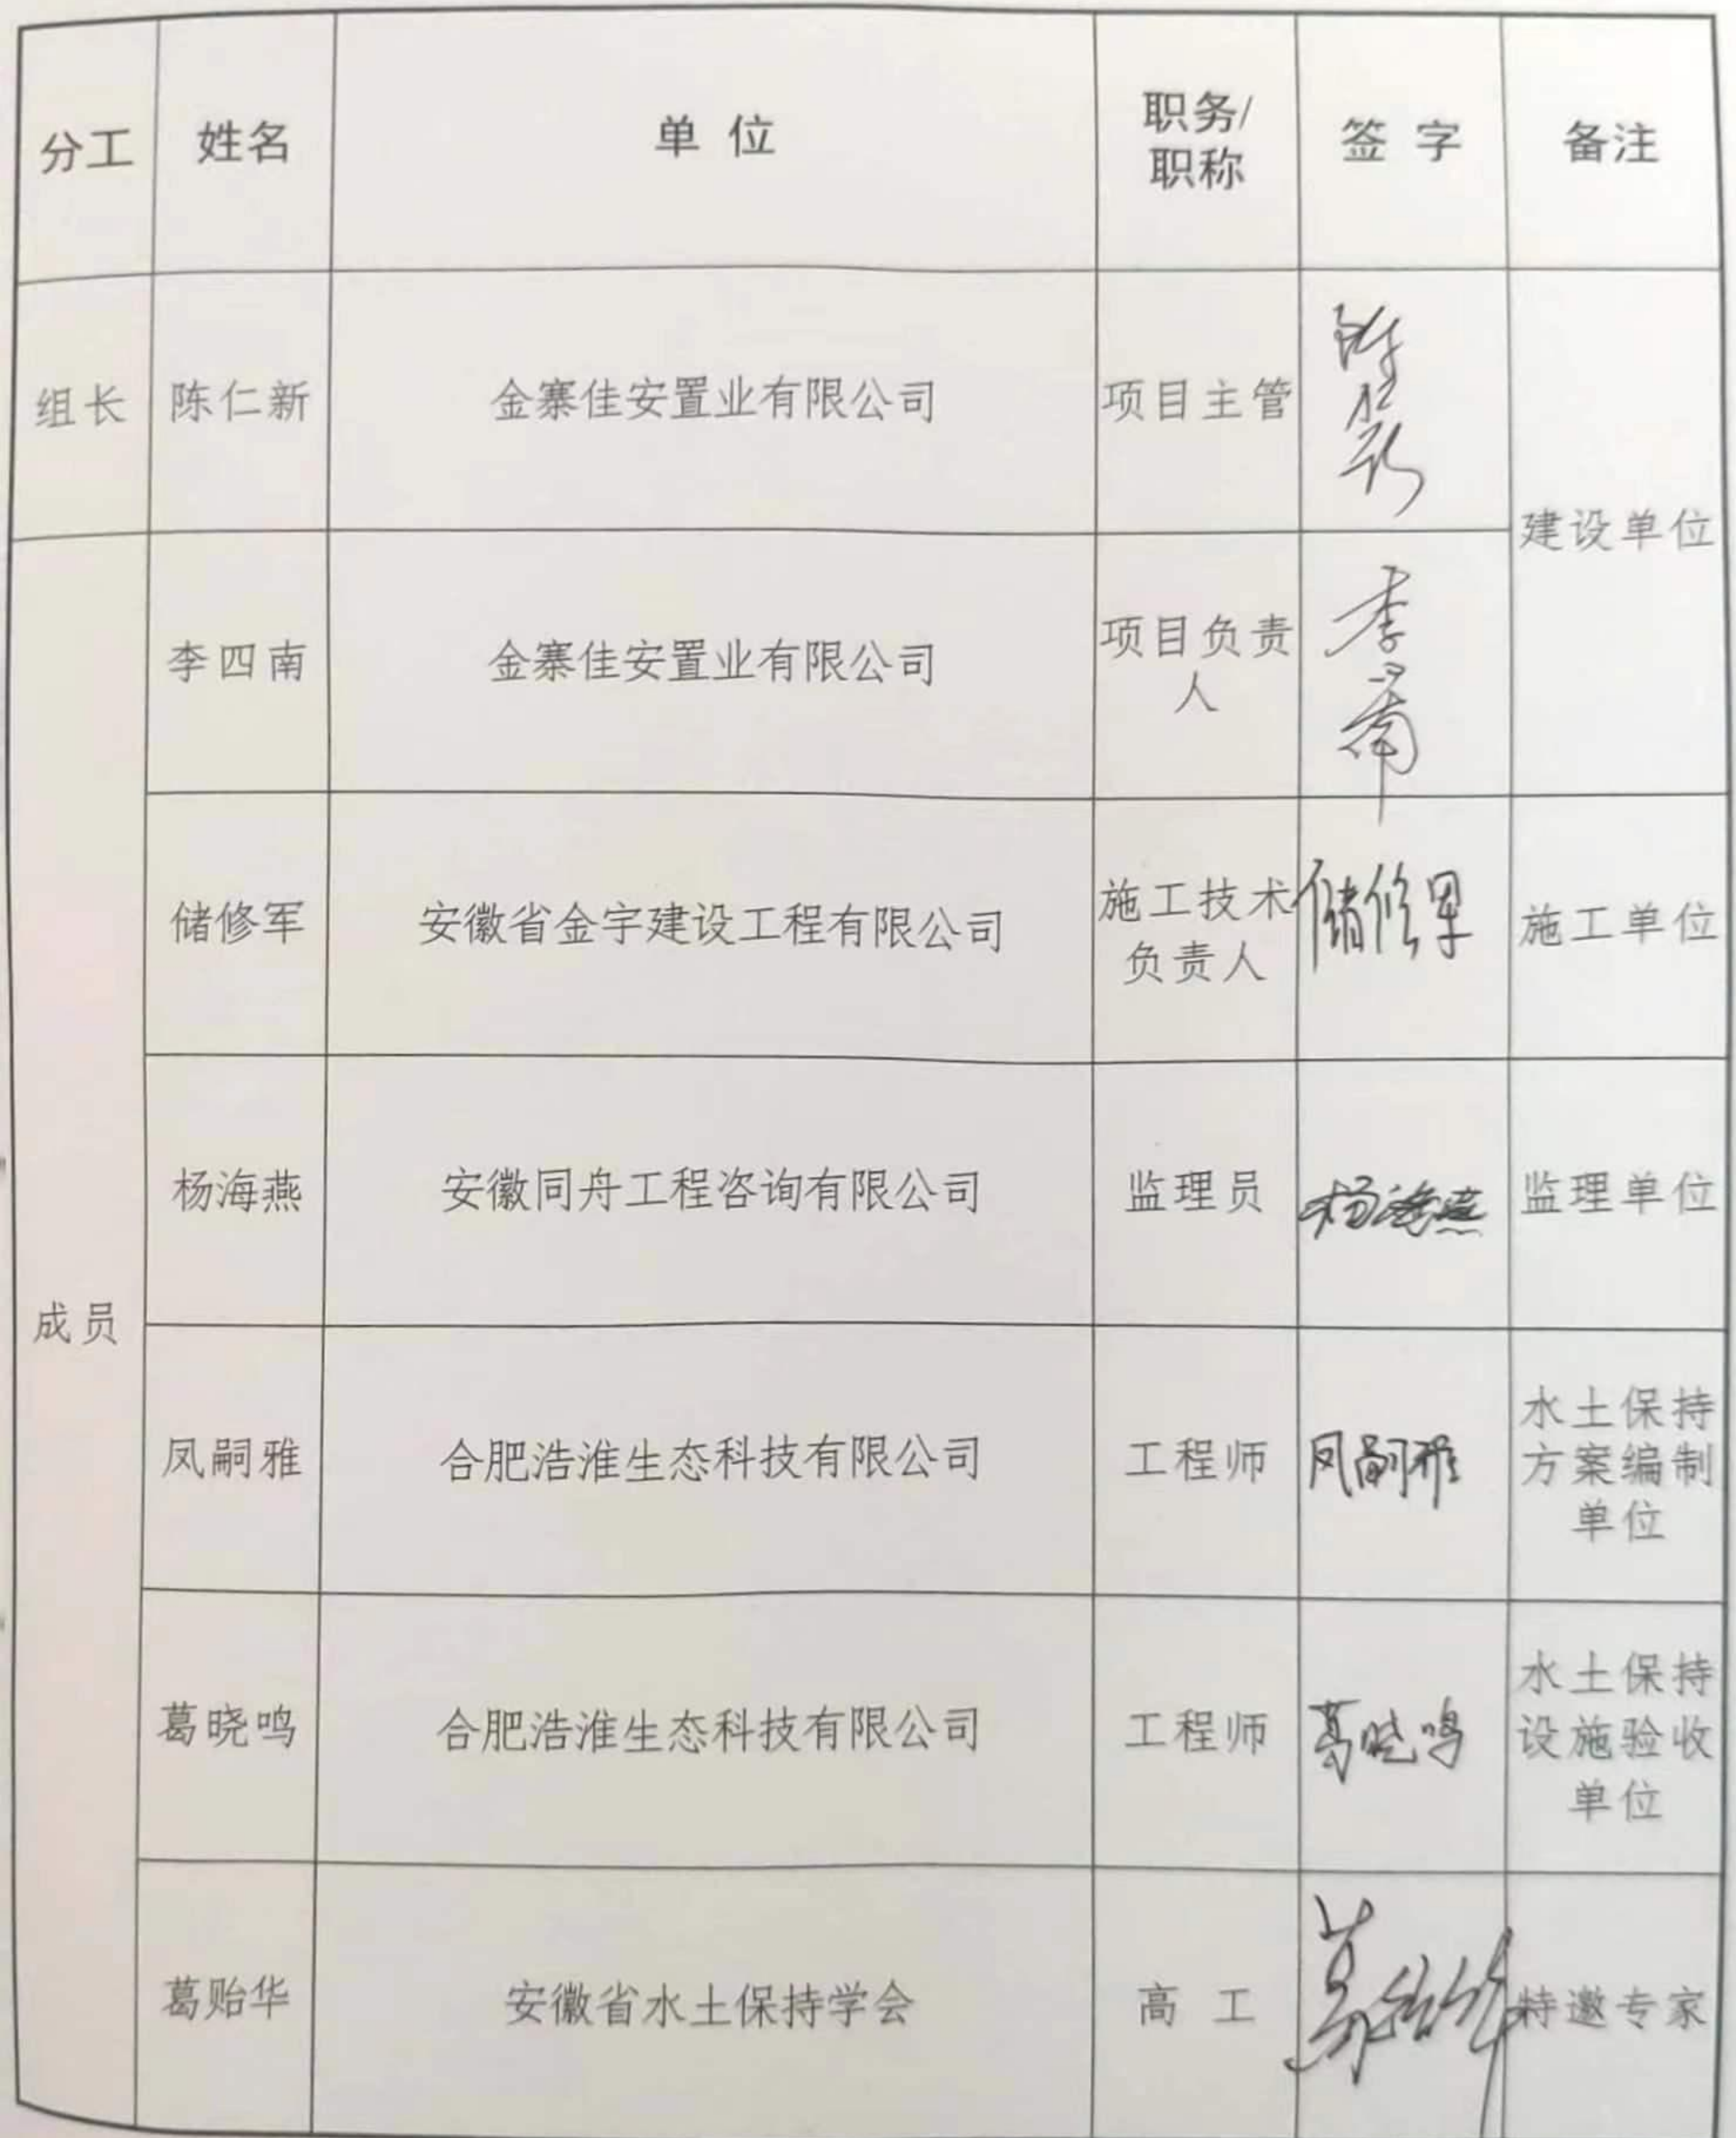 分工 姓名 单 位 职务/职称 签 字 备注
组长 陈仁新 金寨佳安置业有限公司 项目主管 陈仁新 建设单位
成员 李四南 金寨佳安置业有限公司 项目负责人 李四南
储修军 安徽省金宇建设工程有限公司 施工技术负责人 储修军 施工单位
杨海燕 安徽同舟工程咨询有限公司 监理员 杨海燕 监理单位
凤嗣雅 合肥浩淮生态科技有限公司 工程师 凤嗣雅 水土保持方案编制单位
葛晓鸣 合肥浩淮生态科技有限公司 工程师 葛晓鸣 水土保持设施验收单位
葛贻华 安徽省水土保持学会 高 工 葛贻华 特邀专家